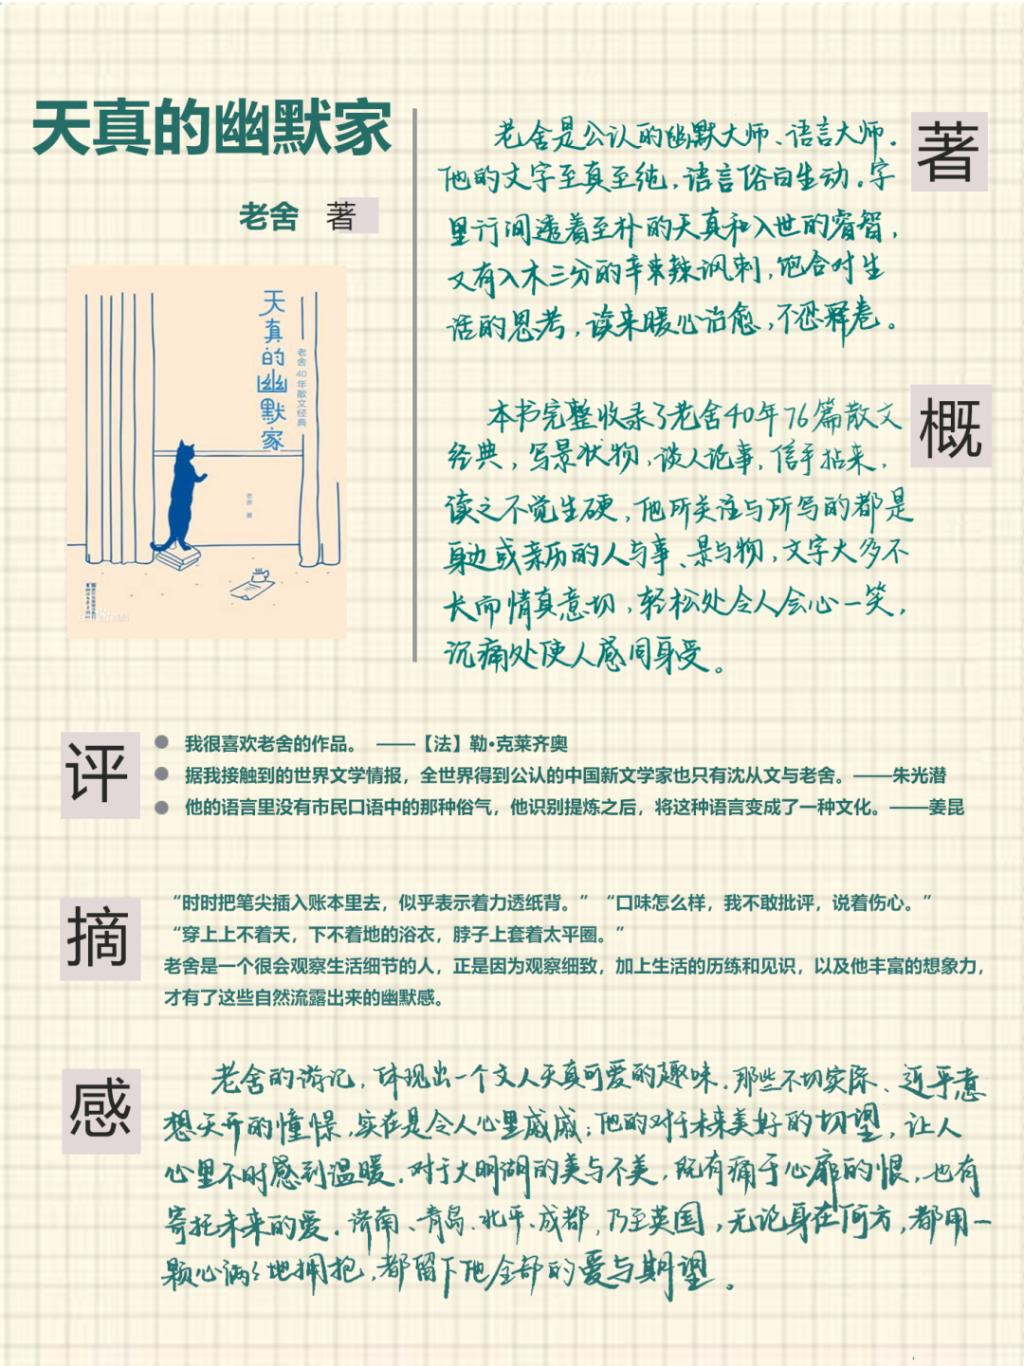 天真的幽默家
老舍 著
天真的幽默家
老舍40年散文经典
老舍 著
著
老舍是公认的幽默大师、语言大师。
他的文字至真至纯，语言俗白生动。字
里行间透着至朴的天真和入世的睿智，
又有入木三分的辛辣讽刺，饱含对生
活的思考，读来暖心治愈，不忍释卷。
概
本书完整收录了老舍40年76篇散文
经典，写景状物，谈人论事，信手拈来，
读之不觉生硬，他所关注与所写的都是
身边或亲历的人与事、景与物，文字大多不
长而情真意切，轻松处令人会心一笑，
沉痛处使人感同身受。
评
我很喜欢老舍的作品。 ——【法】勒·克莱齐奥
据我接触到的世界文学情报，全世界得到公认的中国新文学家也只有沈从文与老舍。——朱光潜
他的语言里没有市民口语中的那种俗气，他识别提炼之后，将这种语言变成了一种文化。——姜昆
摘
“时时把笔尖插入账本里去，似乎表示着力透纸背。” “口味怎么样，我不敢批评，说着伤心。”
“穿上上不着天，下不着地的浴衣，脖子上套着太平圈。”
老舍是一个很会观察生活细节的人，正是因为观察细致，加上生活的历练和见识，以及他丰富的想象力，
才有了这些自然流露出来的幽默感。
感
老舍的游记，体现出一个文人天真可爱的趣味。那些不切实际、近乎意
想天开的憧憬，实在是令人心里戚戚；他的对于未来美好的切望，让人
心里不时感到温暖。对于大明湖的美与不美，既有痛于心扉的恨，也有
寄托未来的爱。济南、青岛、北平、成都，乃至英国，无论身在何方，都用一
颗心满满地拥抱，都留下他全部的爱与期望。